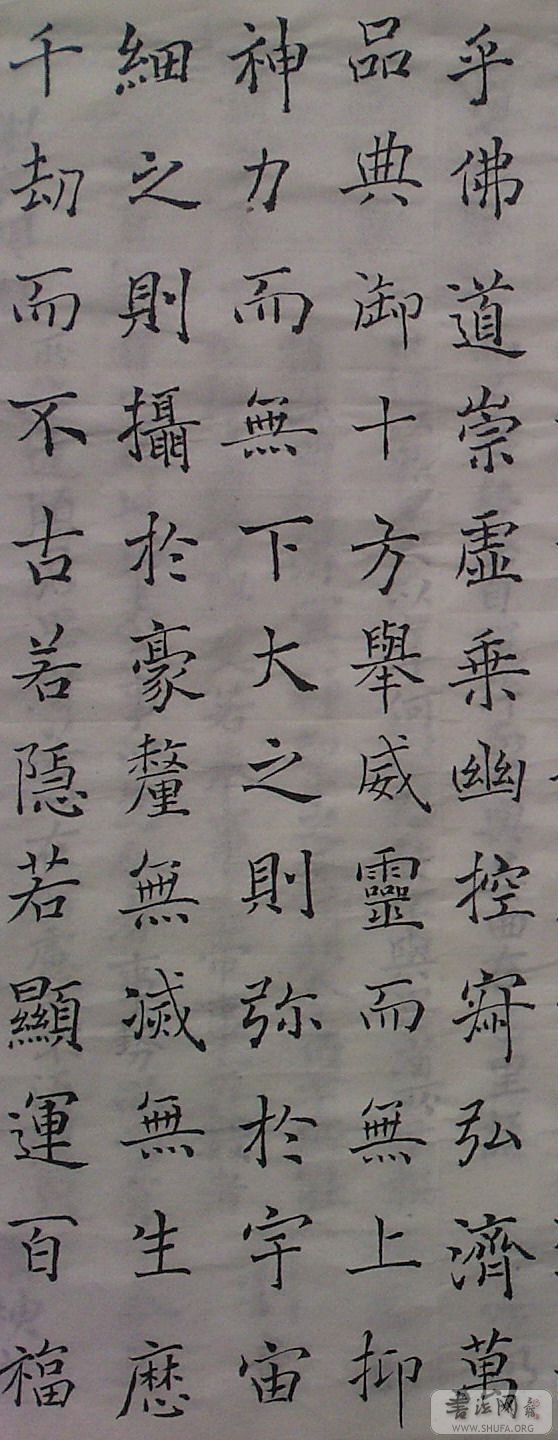 乎佛道崇虛乗幽控寂弘濟萬
品典御十方舉威靈而無上抑
神力而無下大之則弥於宇宙
細之則攝於豪釐無滅無生歷
千劫而不古若隱若顯運百福
書法网
WWW.SHUFA.ORG